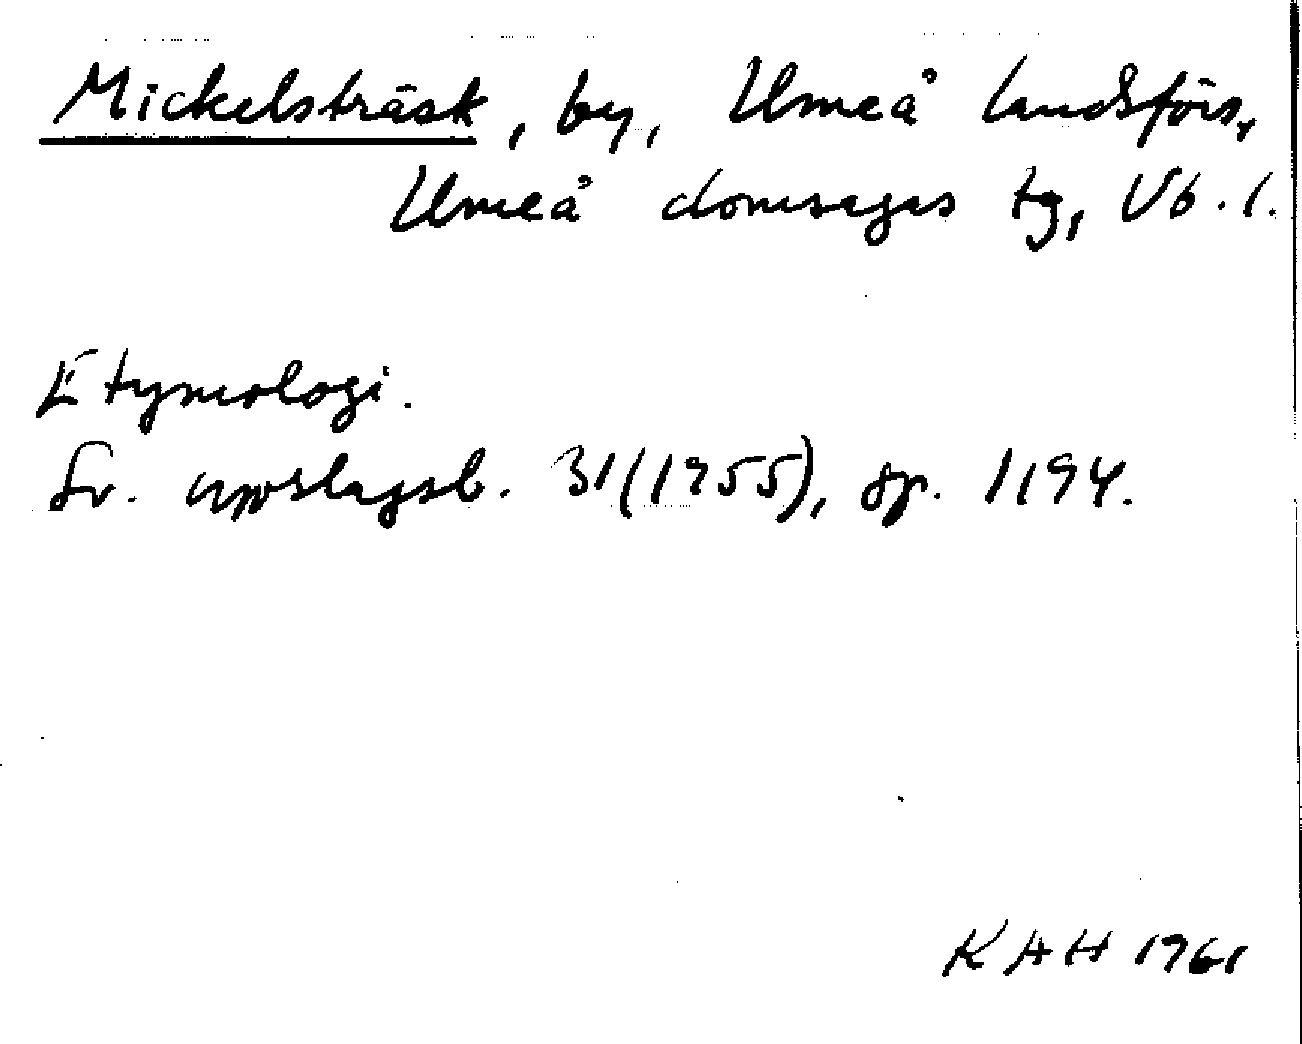 Mickelsträsk, by, Umeå landsförs.,
Umeå domsagas tg, Vb. l.
Etymologi.
Sv. uppslagsb. 31(1955), sp. 1194.
KAH 1961